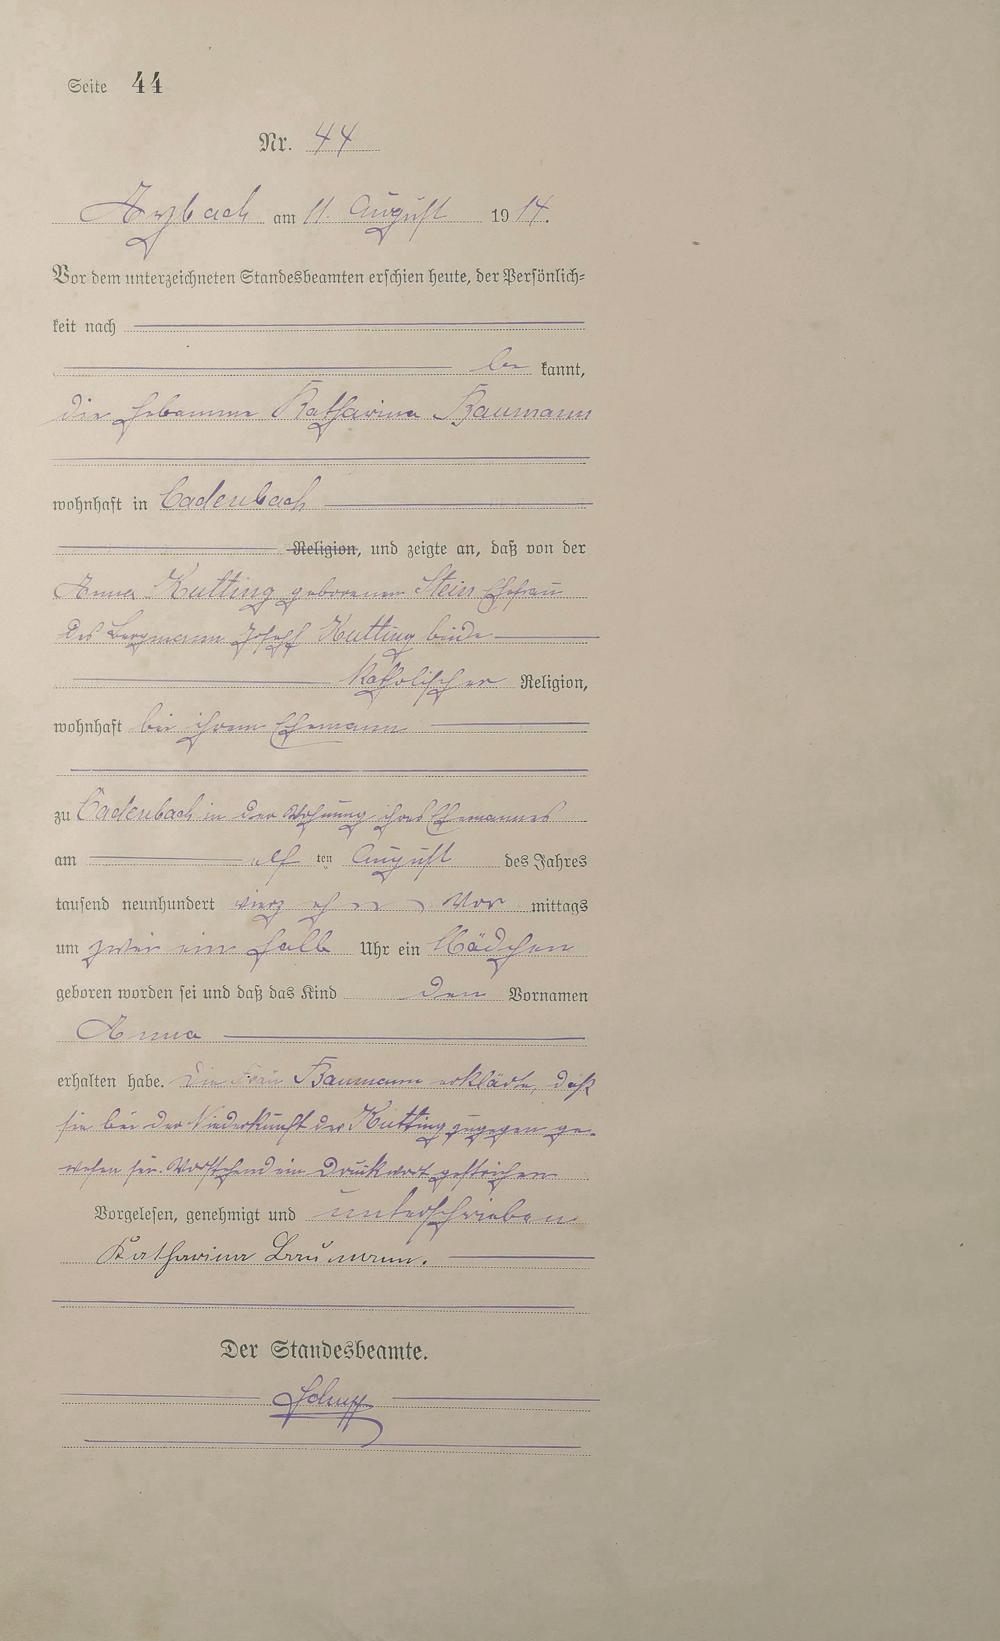 Seite 44
Nr. 44
Arzbach am 11. August 1914.
Vor dem unterzeichneten Standesbeamten erschien heute, der Persönlich-
keit nach
be kannt,
die Hebamme Katharina Baumann
wohnhaft in Cadenbach
Religion, und zeigte an, daß von der
Anna Kutting geborenen Stein Ehefrau
des Bergmann Joseph Kutting beide
katholischer Religion,
wohnhaft bei ihrem Ehemann
zu Cadenbach in der Wohnung ihres Ehemannes
am elf ten August des Jahres
tausend neunhundert vierzehn Vor mittags
um zwei ein halb Uhr ein Mädchen
geboren worden sei und daß das Kind den Vornamen
Anna
erhalten habe. Die Frau Baumann erklärte, daß
sie bei der Niederkunft der Kutting zugegen ge-
wesen sei. Vorstehend ein Druckwort gestrichen
Vorgelesen, genehmigt und unterschrieben
Katharina Baumann.
Der Standesbeamte.